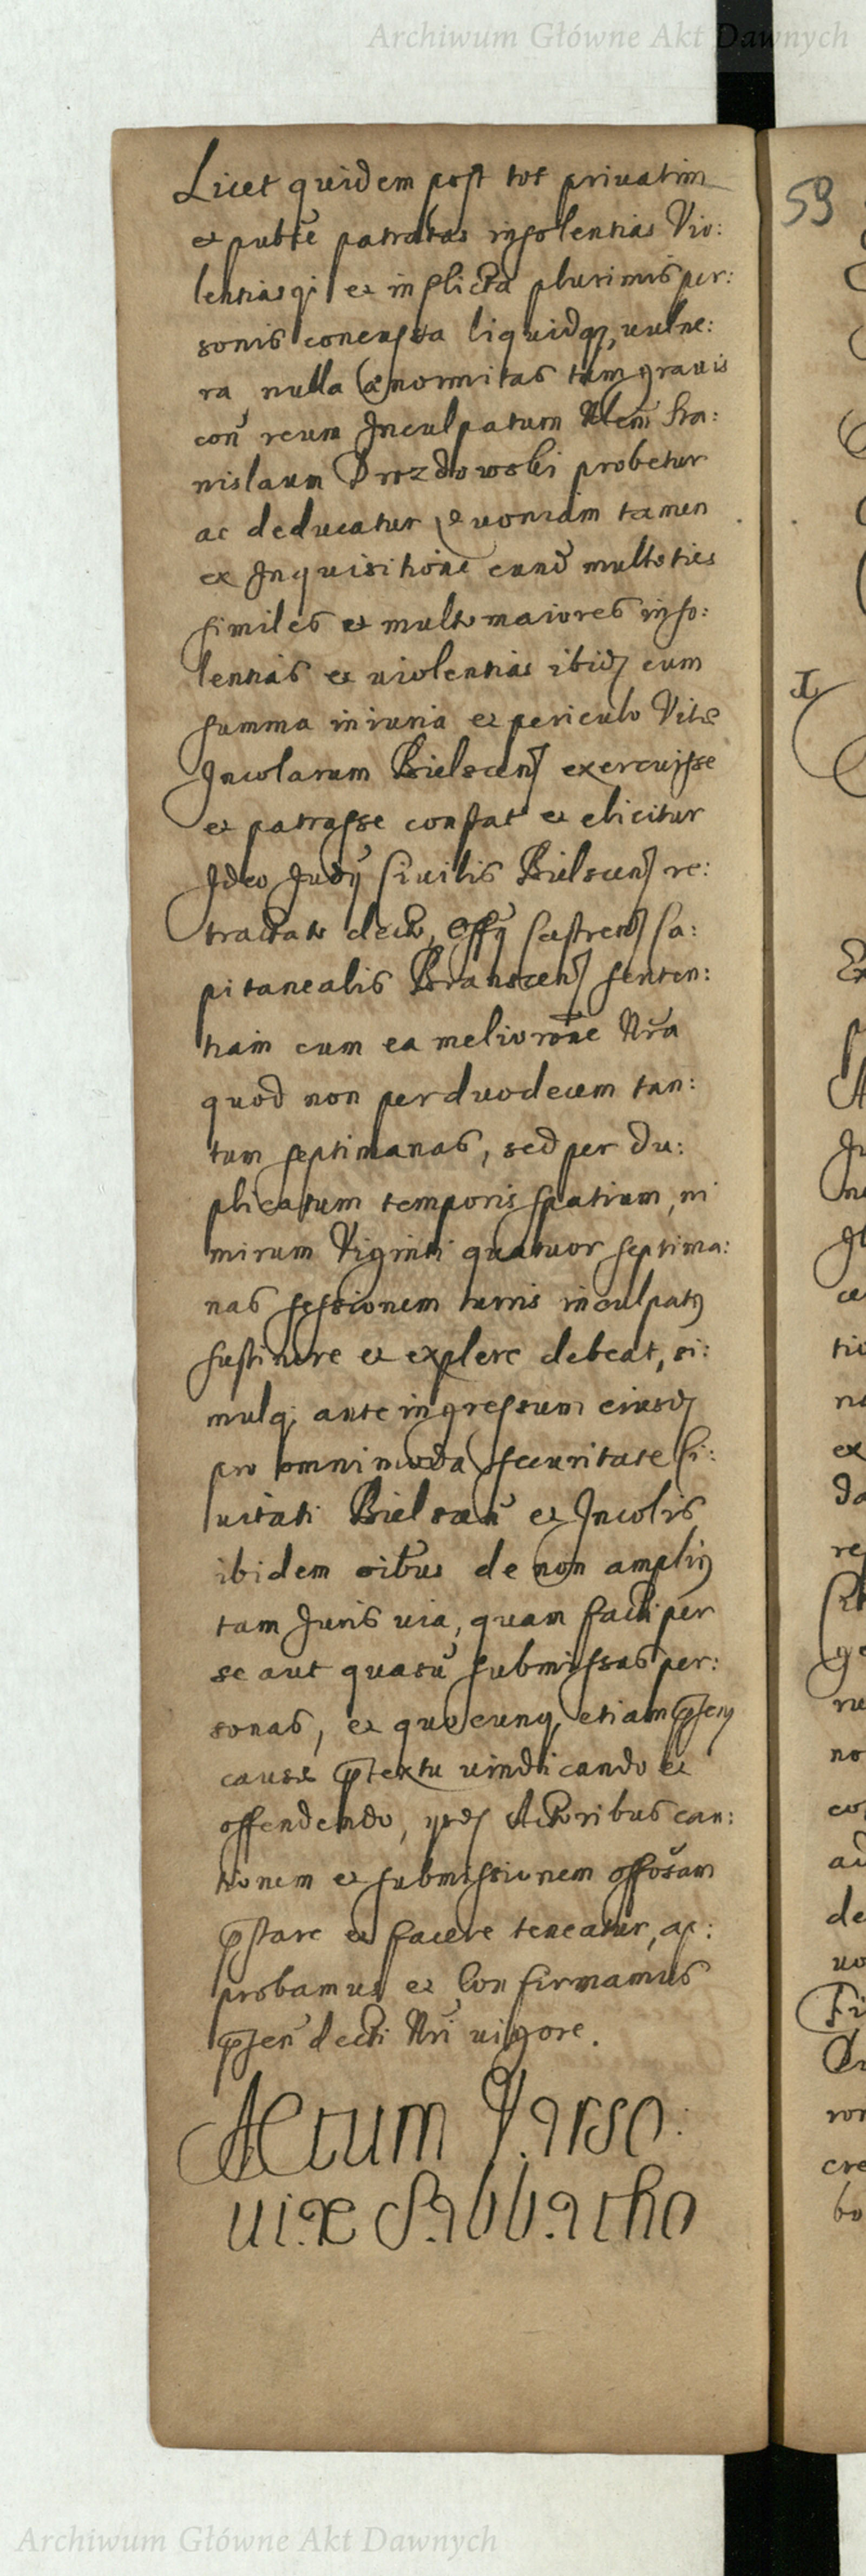 Archiwum Główne Akt Dawnych
Licet quidem post tot priuatim
et publẽ patratas insolentias Vio:
lentiasq; et inflicta plurimis per:
sonis concussa liquidq;, uulne:
ra, nulla ænormitas tam grauis
con̄ reum Inculpatum Nlem Sta:
nislaum Drozdowski probetur
ac deducatur, quoniam tamen
ex Inquisitione eund̄ multoties
similes et multo maiores inso:
lentias et uiolentias ibid cum
summa iniuria et periculo Vitæ
Incolarum Bielscen exercuisse
et patrasse constat et elicitur
Ideo Judÿ Ciuilis Bielscen re:
tractato decto, Offÿ Castren Ca:
pitanealis Branscen senten:
tiam cum ea meliorõne Nrã
quod non per duodecem tan:
tum septimanas, sed per du:
plicatum temporis spatium, ni
mirum Viginti quatuor septima:
nas sessionem turris inculpatq
sustinere et explere debeat, si:
mulq; ante ingressum eiusd
pro omnimoda securitate Ci:
uitati Bielscen̄ et Incolis
ibidem oĩbus de non ampliq
tam Juris uia, quam facti per
se aut quasũ submissas per:
sonas, et quocunq, etiam p̄sen
causæ p̄textu uindicando et
offendendo, ysd Actoribus cau:
tionem et submissionem offõsam
p̄stare et facere teneatur, ap:
probamus et Confirmamus
p̄sen̄ decti Nri uigore.
Actum Varso:
uiæ Sabbatho
59
Archiwum Główne Akt Dawnych